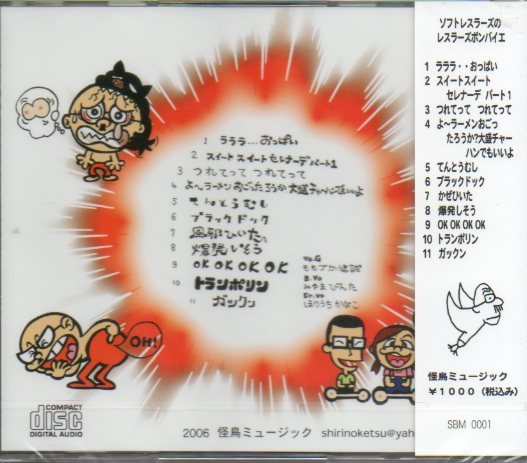 1 ラララ...おっぱい
2 スイートスイートセレナーデパート1
3 つれてって つれてって
4 よ~ラーメンおごったろうか大盛チャーハンでもいいよ
5 てんとうむし
6 ブラックドック
7 風邪ひいた
8 爆発しそう
9 OK OK OK OK
10 トランポリン
11 ガックン
Vo.G
B.Vo
みやまびんた
Dr.Vo
OH!
COMPACT
disc
DIGITAL AUDIO
2006 怪鳥ミュージック shirinoketsu@yah
ソフトレスラーズの
レスラーズボンバイエ
1 ラララ・・おっぱい
2 スイートスイート
セレナーデ パート1
3 つれてって つれてって
4 よ~ラーメンおごっ
たろうか?大盛チャー
ハンでもいいよ
5 てんとうむし
6 ブラックドック
7 かぜひいた
8 爆発しそう
9 OK OK OK OK
10 トランポリン
11 ガックン
怪鳥ミュージック
¥1000(税込み)
SBM 0001